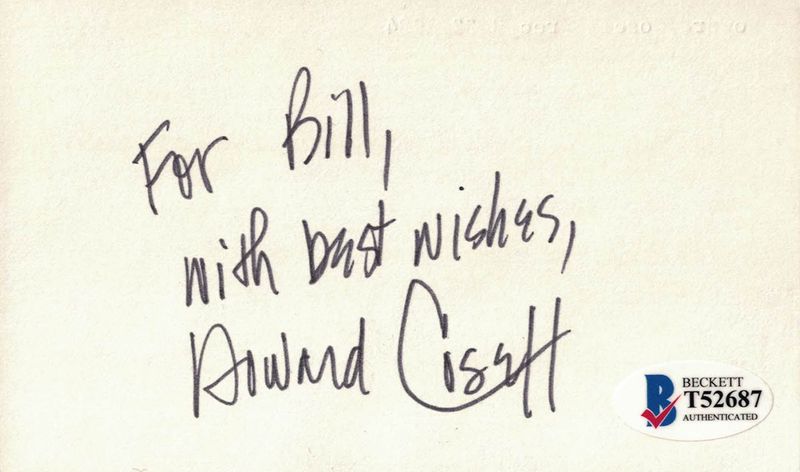 For Bill,
with best wishes,
Howard Cosell
BECKETT
T52687
AUTHENTICATED